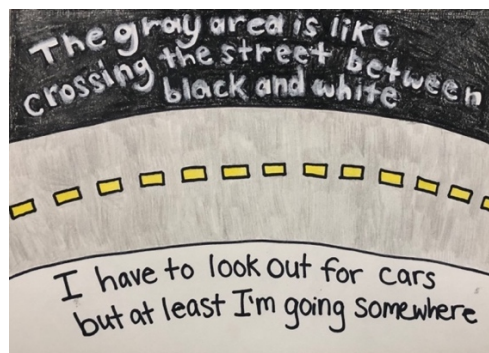 The gray area is like
crossing the street between
black and white
I have to look out for cars
but at least I'm going somewhere